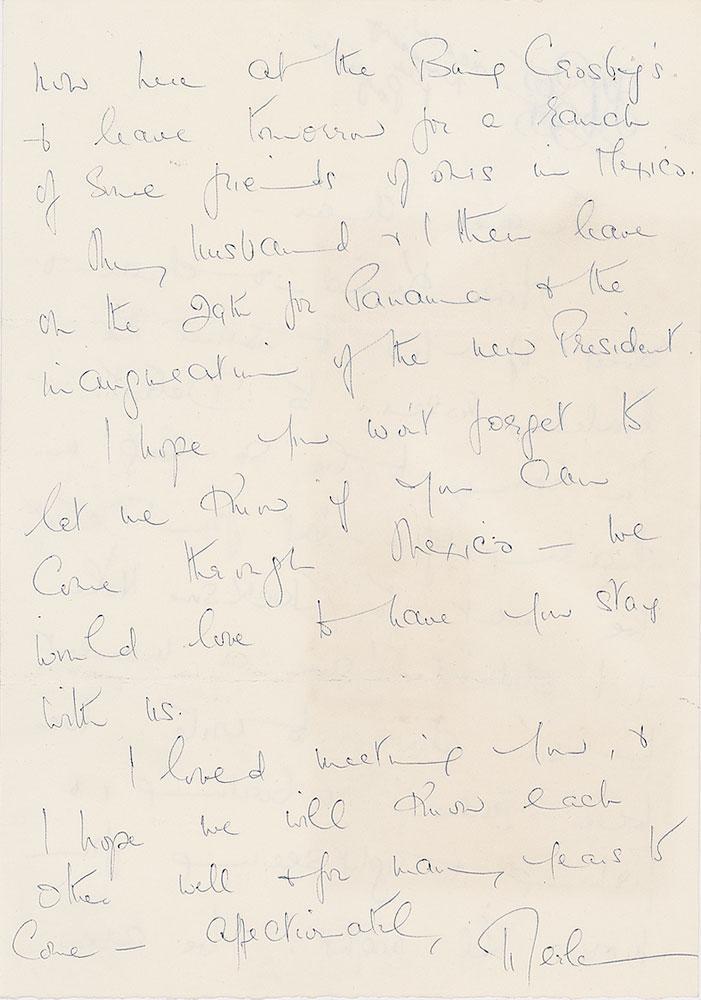 now here at the Bing Crosby's
& leave tomorrow for a ranch
of some friends of ours in Mexico.
My husband & I then leave
on the 29th for Panama & the
inauguration of the new President.
I hope you won't forget to
let me know if you can
come through Mexico — we
would love to have you stay
with us.
I loved meeting you, &
I hope we will know each
other well & for many years to
come — affectionately, Merle